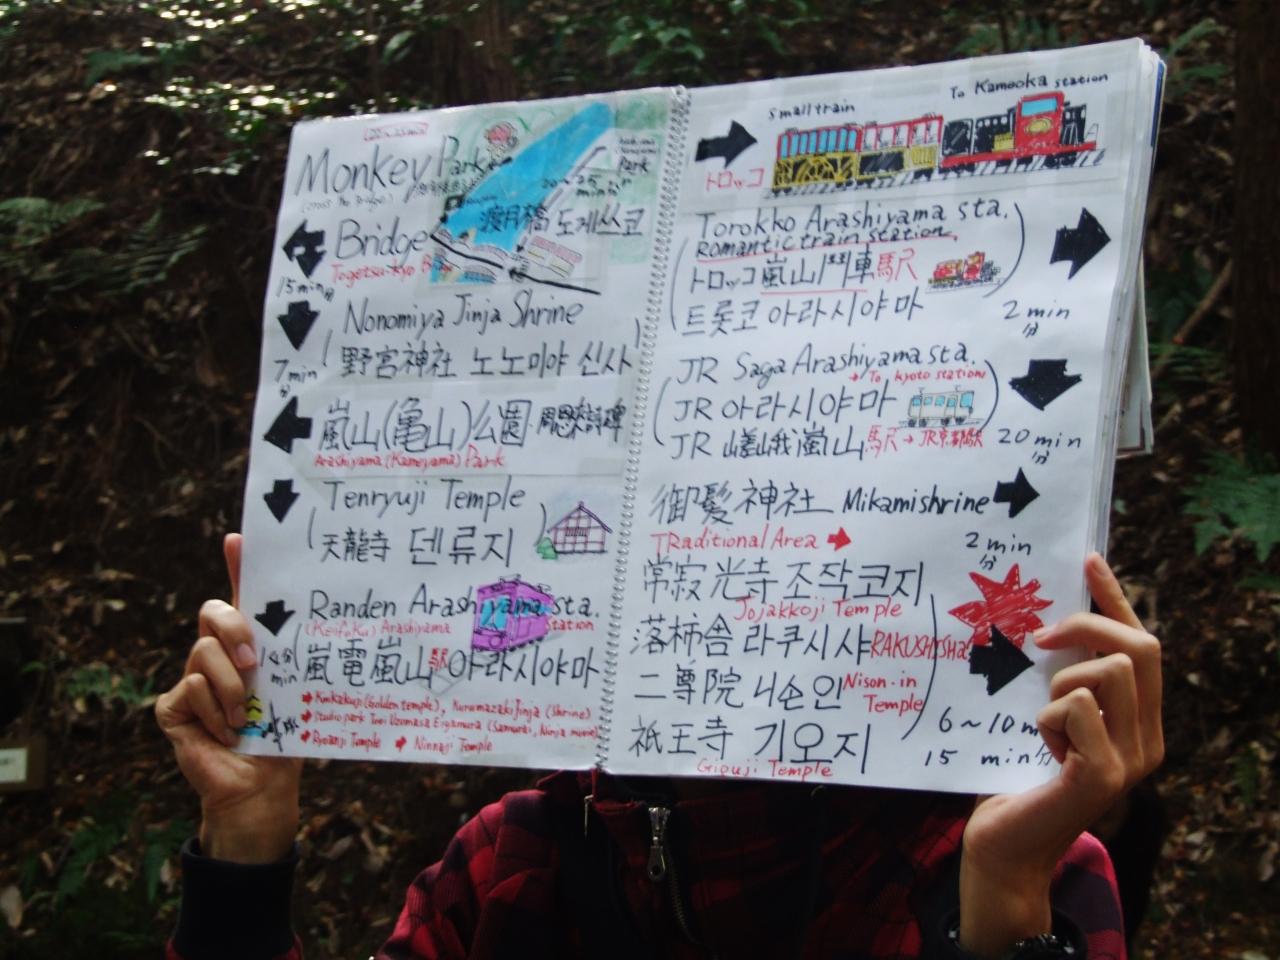 Monkey Park
(cross the Bridge)
Park
20~25
min
渡月橋 도게쓰쿄
Bridge
Togetsu-kyo
15 min 分
Nonomiya Jinja Shrine
野宮神社 노노미야 신사
7 min
分
嵐山(亀山)公園 周恩来詩碑
Arashiyama (Kameyama) Park
Tenryuji Temple
天龍寺 덴류지
Randen Arashiyama sta.
(Keifuku) Arashiyama Station
嵐電嵐山駅 아라시야마
min
Kinkakuji (Golden temple), Kurumazaki Jinja (Shrine)
Studio park Toei Uzumasa Eigamura (Samurai, Ninja movie)
Ryoanji Temple Ninnaji Temple
small train
To Kameoka station
トロッコ
Torokko Arashiyama sta.
Romantic train station.
トロッコ嵐山門車駅
트롯코 아라시야마
2 min
分
JR Saga Arashiyama sta.
→ To kyoto station
JR 아라시야마
JR 嵯峨嵐山駅 → JR京都駅
20 min
分
御髪神社 Mikami shrine
TRaditional Area
2 min
分
常寂光寺 조작코지
Jojakkoji Temple
落柿舎 라쿠시샤 RAKUSHISHA
二尊院 니손인 Nison-in
Temple
祇王寺 기오지
Giouji Temple
6~10 m
15 min 分